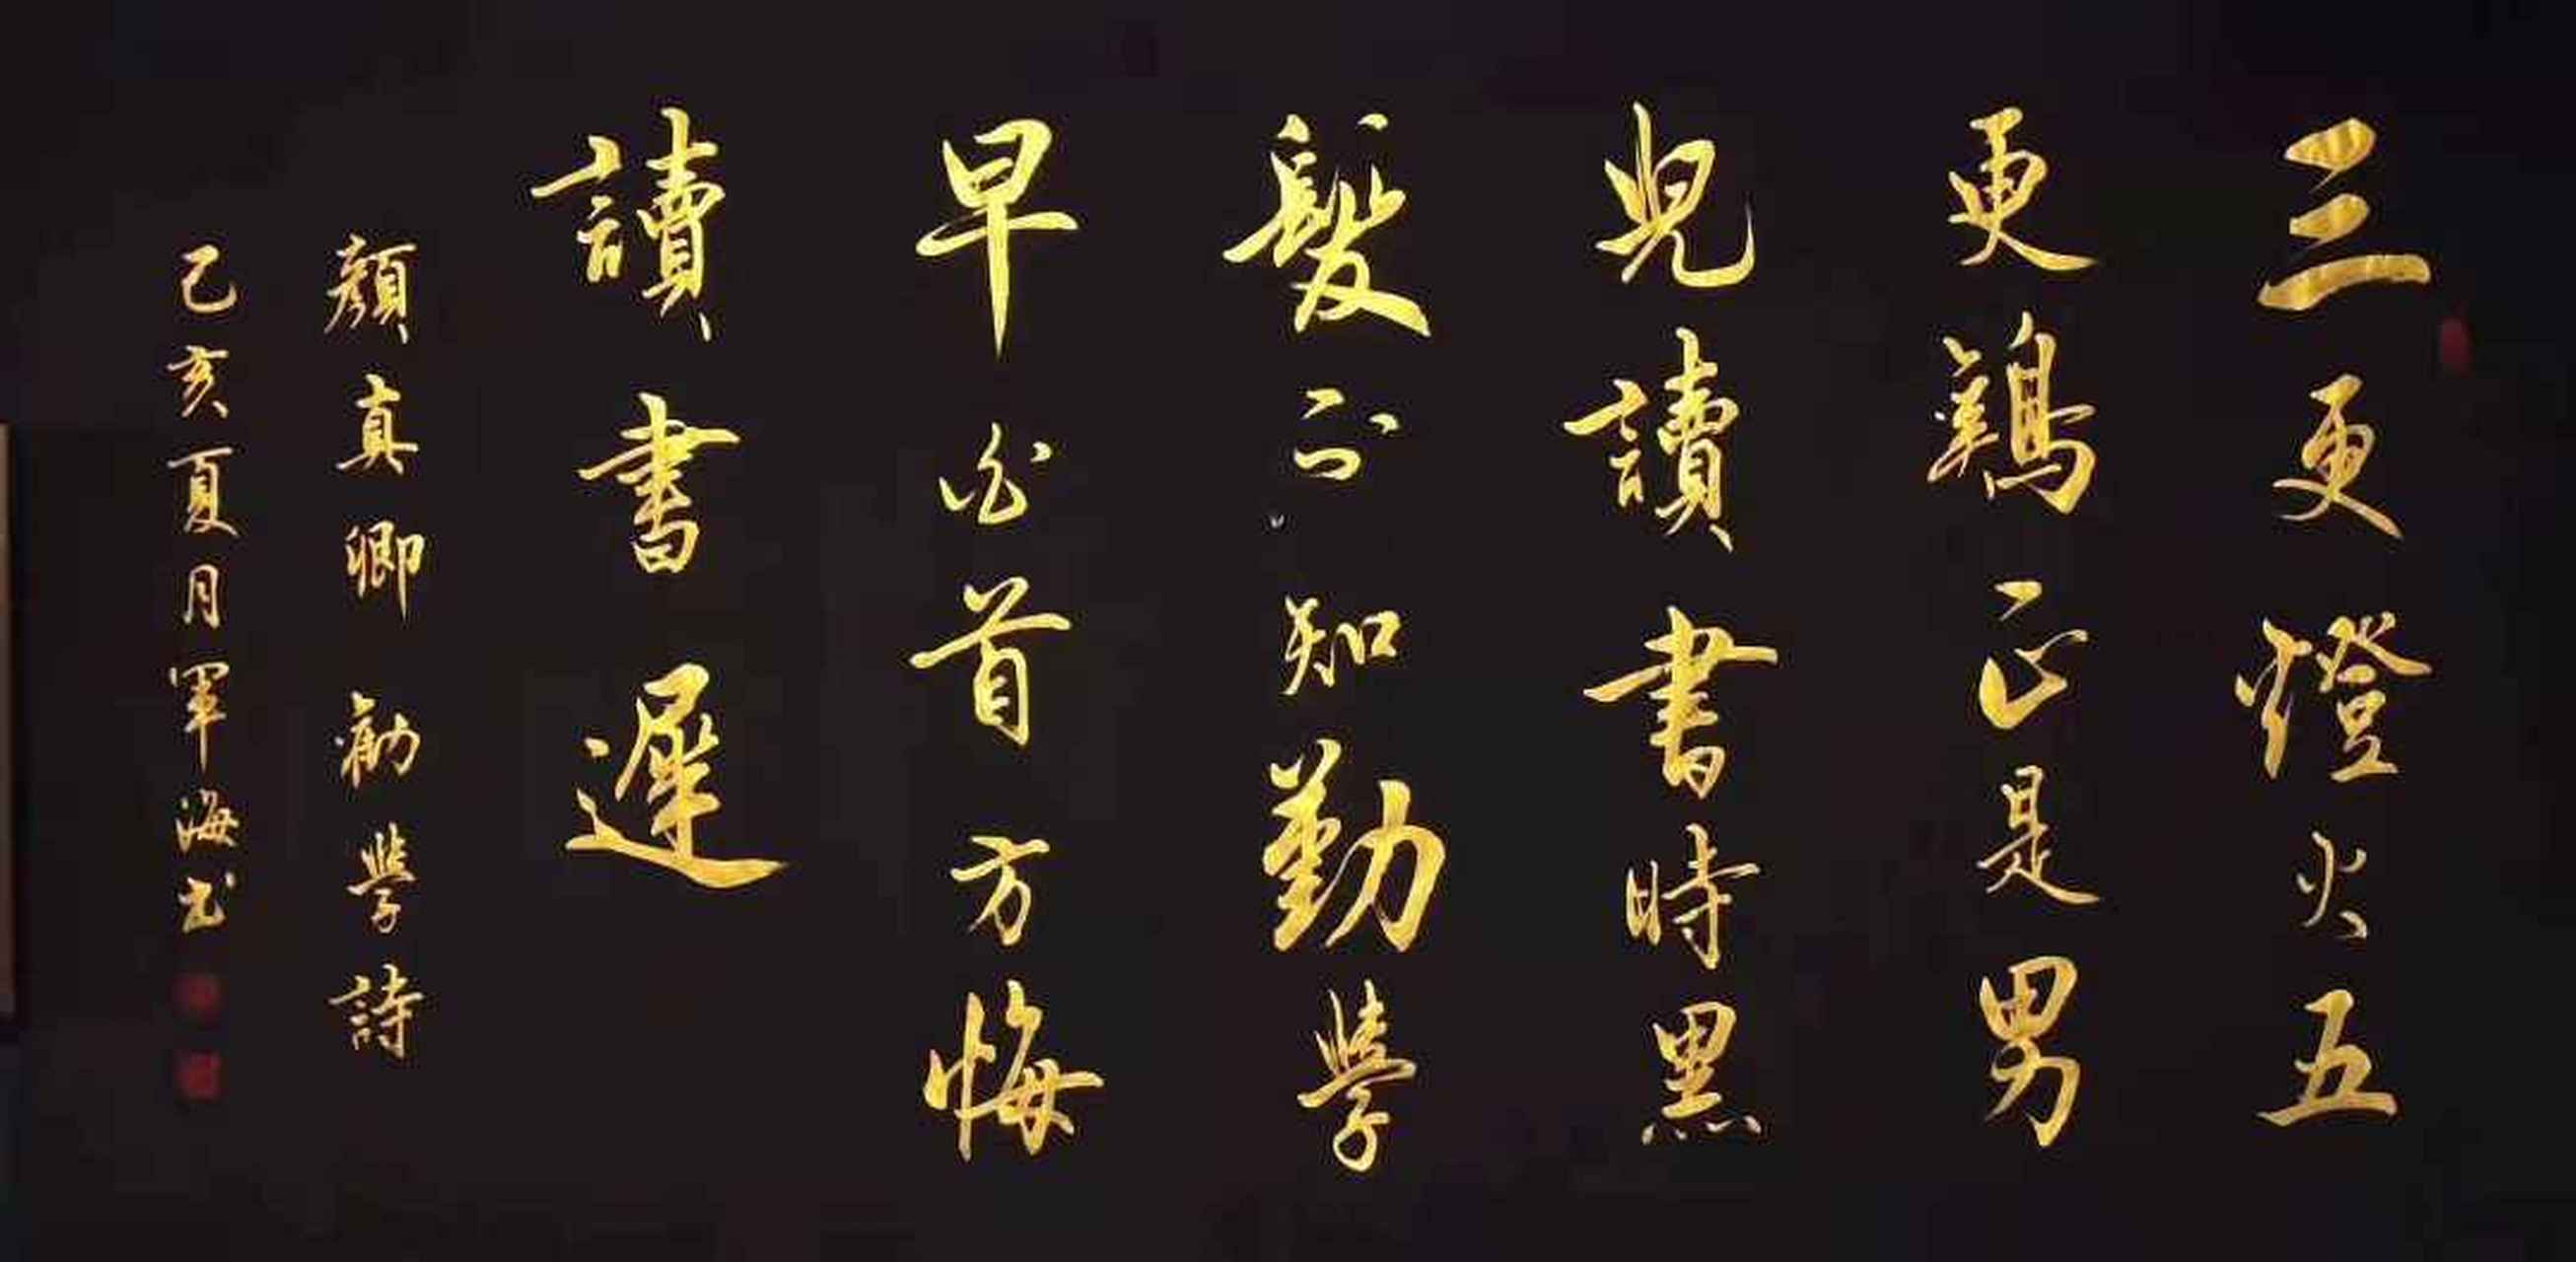 三更燈火五
更鷄正是男
兒讀書時黑
髮不知勤學
早白首方悔
讀書遲
顏真卿勸學詩
己亥夏月軍海书